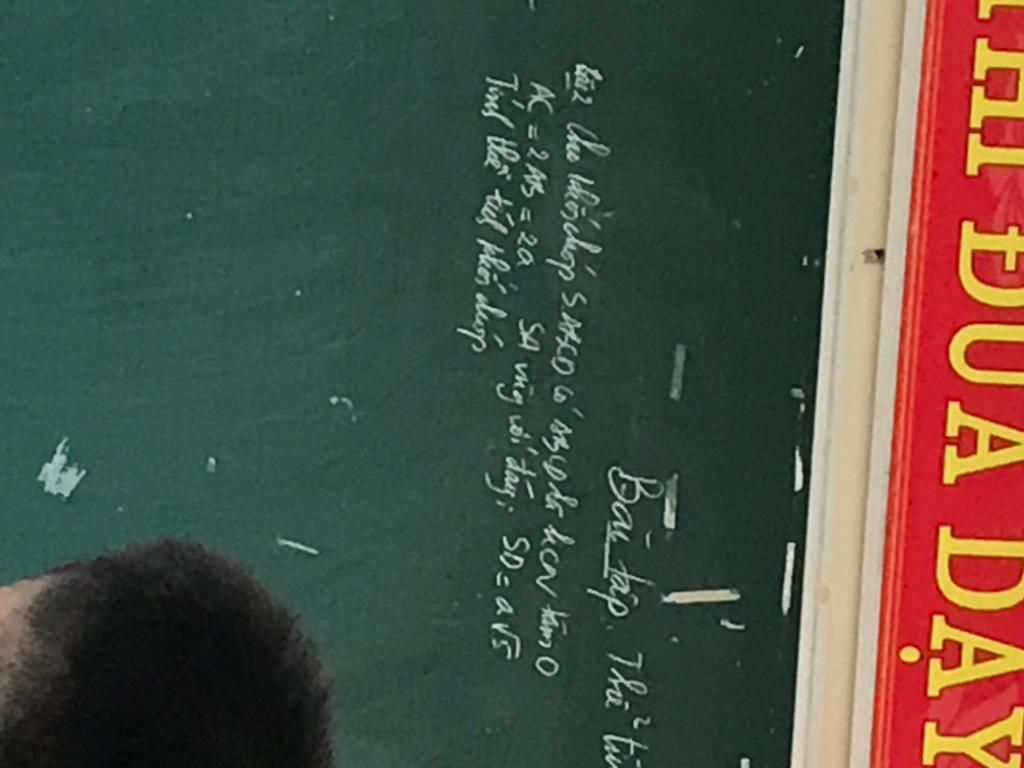 THI ĐUA DẠY
Bài tập. Thể
Bài 2 Cho khối chóp S.ABCD có ABCD là hcn tâm O
AC = 2AB = 2a SA vuông với đáy; SD = a√5
Tính thể tích khối chóp